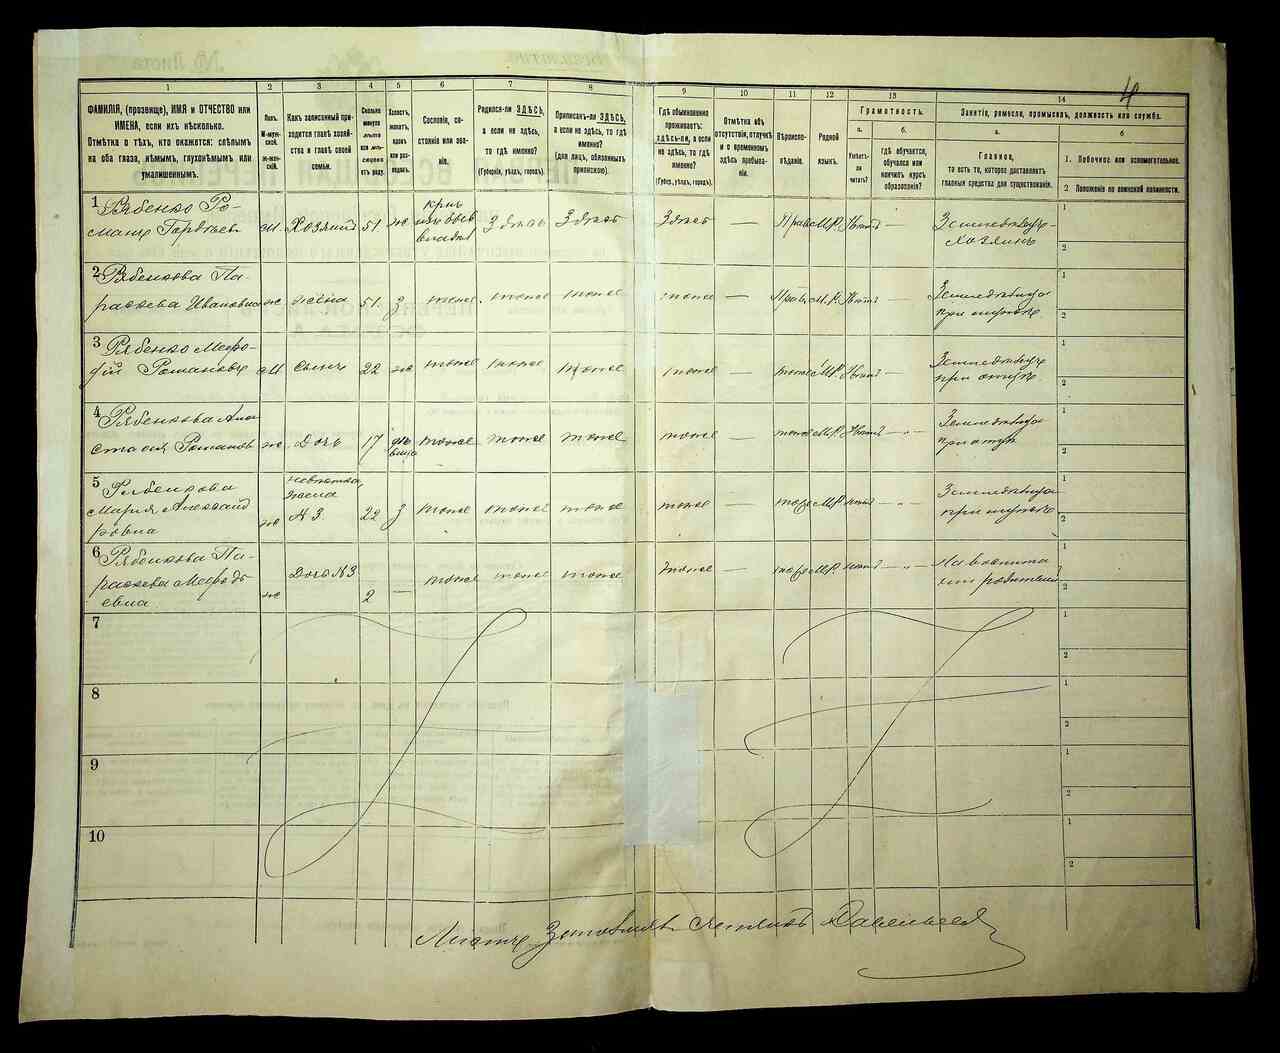 1 2 3 4 5 6 7 8 9 10 11 12 13 14
4
ФАМИЛІЯ, (прозвище), ИМЯ и ОТЧЕСТВО или
ИМЕНА, если ихъ нѣсколько.
Отмѣтка о тѣхъ, кто окажется: слѣпымъ
на оба глаза, нѣмымъ, глухонѣмымъ или
умалишеннымъ.
Полъ.
М-муж-
ской.
Ж-жен-
скій.
Какъ записанный при-
ходится главѣ хозяй-
ства и главѣ своей
семьи.
Сколько
минуло
лѣтъ
или мѣ-
сяцевъ
отъ роду.
Холостъ,
женатъ,
вдовъ
или раз-
веденъ.
Сословіе, со-
стояніе или зва-
ніе.
Родился-ли ЗДѢСЬ,
а если не здѣсь,
то гдѣ именно?
(Губернія, уѣздъ, городъ).
Приписанъ-ли ЗДѢСЬ,
а если не здѣсь, то гдѣ
именно?
(для лицъ, обязанныхъ
припискою).
Гдѣ обыкновенно
проживаетъ:
здѣсь-ли, а если
не здѣсь, то гдѣ
именно?
(Губерн., уѣздъ, городъ).
Отмѣтка объ
отсутствіи, отлучкѣ
и о временномъ
здѣсь пребыва-
ніи.
Вѣроиспо-
вѣданіе.
Родной
языкъ.
Грамотность.
а.
Умѣетъ-
ли
читать?
б.
гдѣ обучается,
обучался или
кончилъ курсъ
образованія?
Занятіе, ремесло, промыселъ, должность или служба.
а.
Главное,
то есть то, которое доставляетъ
главныя средства для существованія.
б
1. Побочное или вспомогательное.
2. Положеніе по воинской повинности.
1 Рябенко Ро-
манъ Гордѣевъ м. Хозяинъ 51 ж Здѣсь Здѣсь Здѣсь — Прав М.Р. Нѣтъ — Земледѣлецъ-
хозяинъ
2 Рябенкова Па-
раскева Ивановна ж жена 51 з тоже тоже тоже тоже — Прав М.Р. Нѣтъ — Земледѣлица
при мужѣ
3 Рябенко Меѳо-
дій Романовъ М. Сынъ 22 ж тоже тоже тоже тоже — тоже М.Р. Нѣтъ — Земледѣлецъ
при отцѣ
4 Рябенкова Ана-
стасія Романов ж. Дочь 17 дѣ-
вица тоже тоже тоже тоже — тоже М.Р. Нѣтъ — Земледѣлица
при отцѣ
5 Рябенкова
Марія Александ
ровна ж невѣстка,
жена
N 3. 22 з тоже тоже тоже тоже — тоже М.Р. нѣтъ — Земледѣлица
при мужѣ
6 Рябенкова Па-
раскева Меѳодъ
евна ж Дочь N 3 2 — тоже тоже тоже тоже — тоже М.Р. нѣтъ —
7
8
9
10
1
2
1
2
1
2
1
2
1
2
1
2
1
2
1
2
1
2
1
2
Листъ